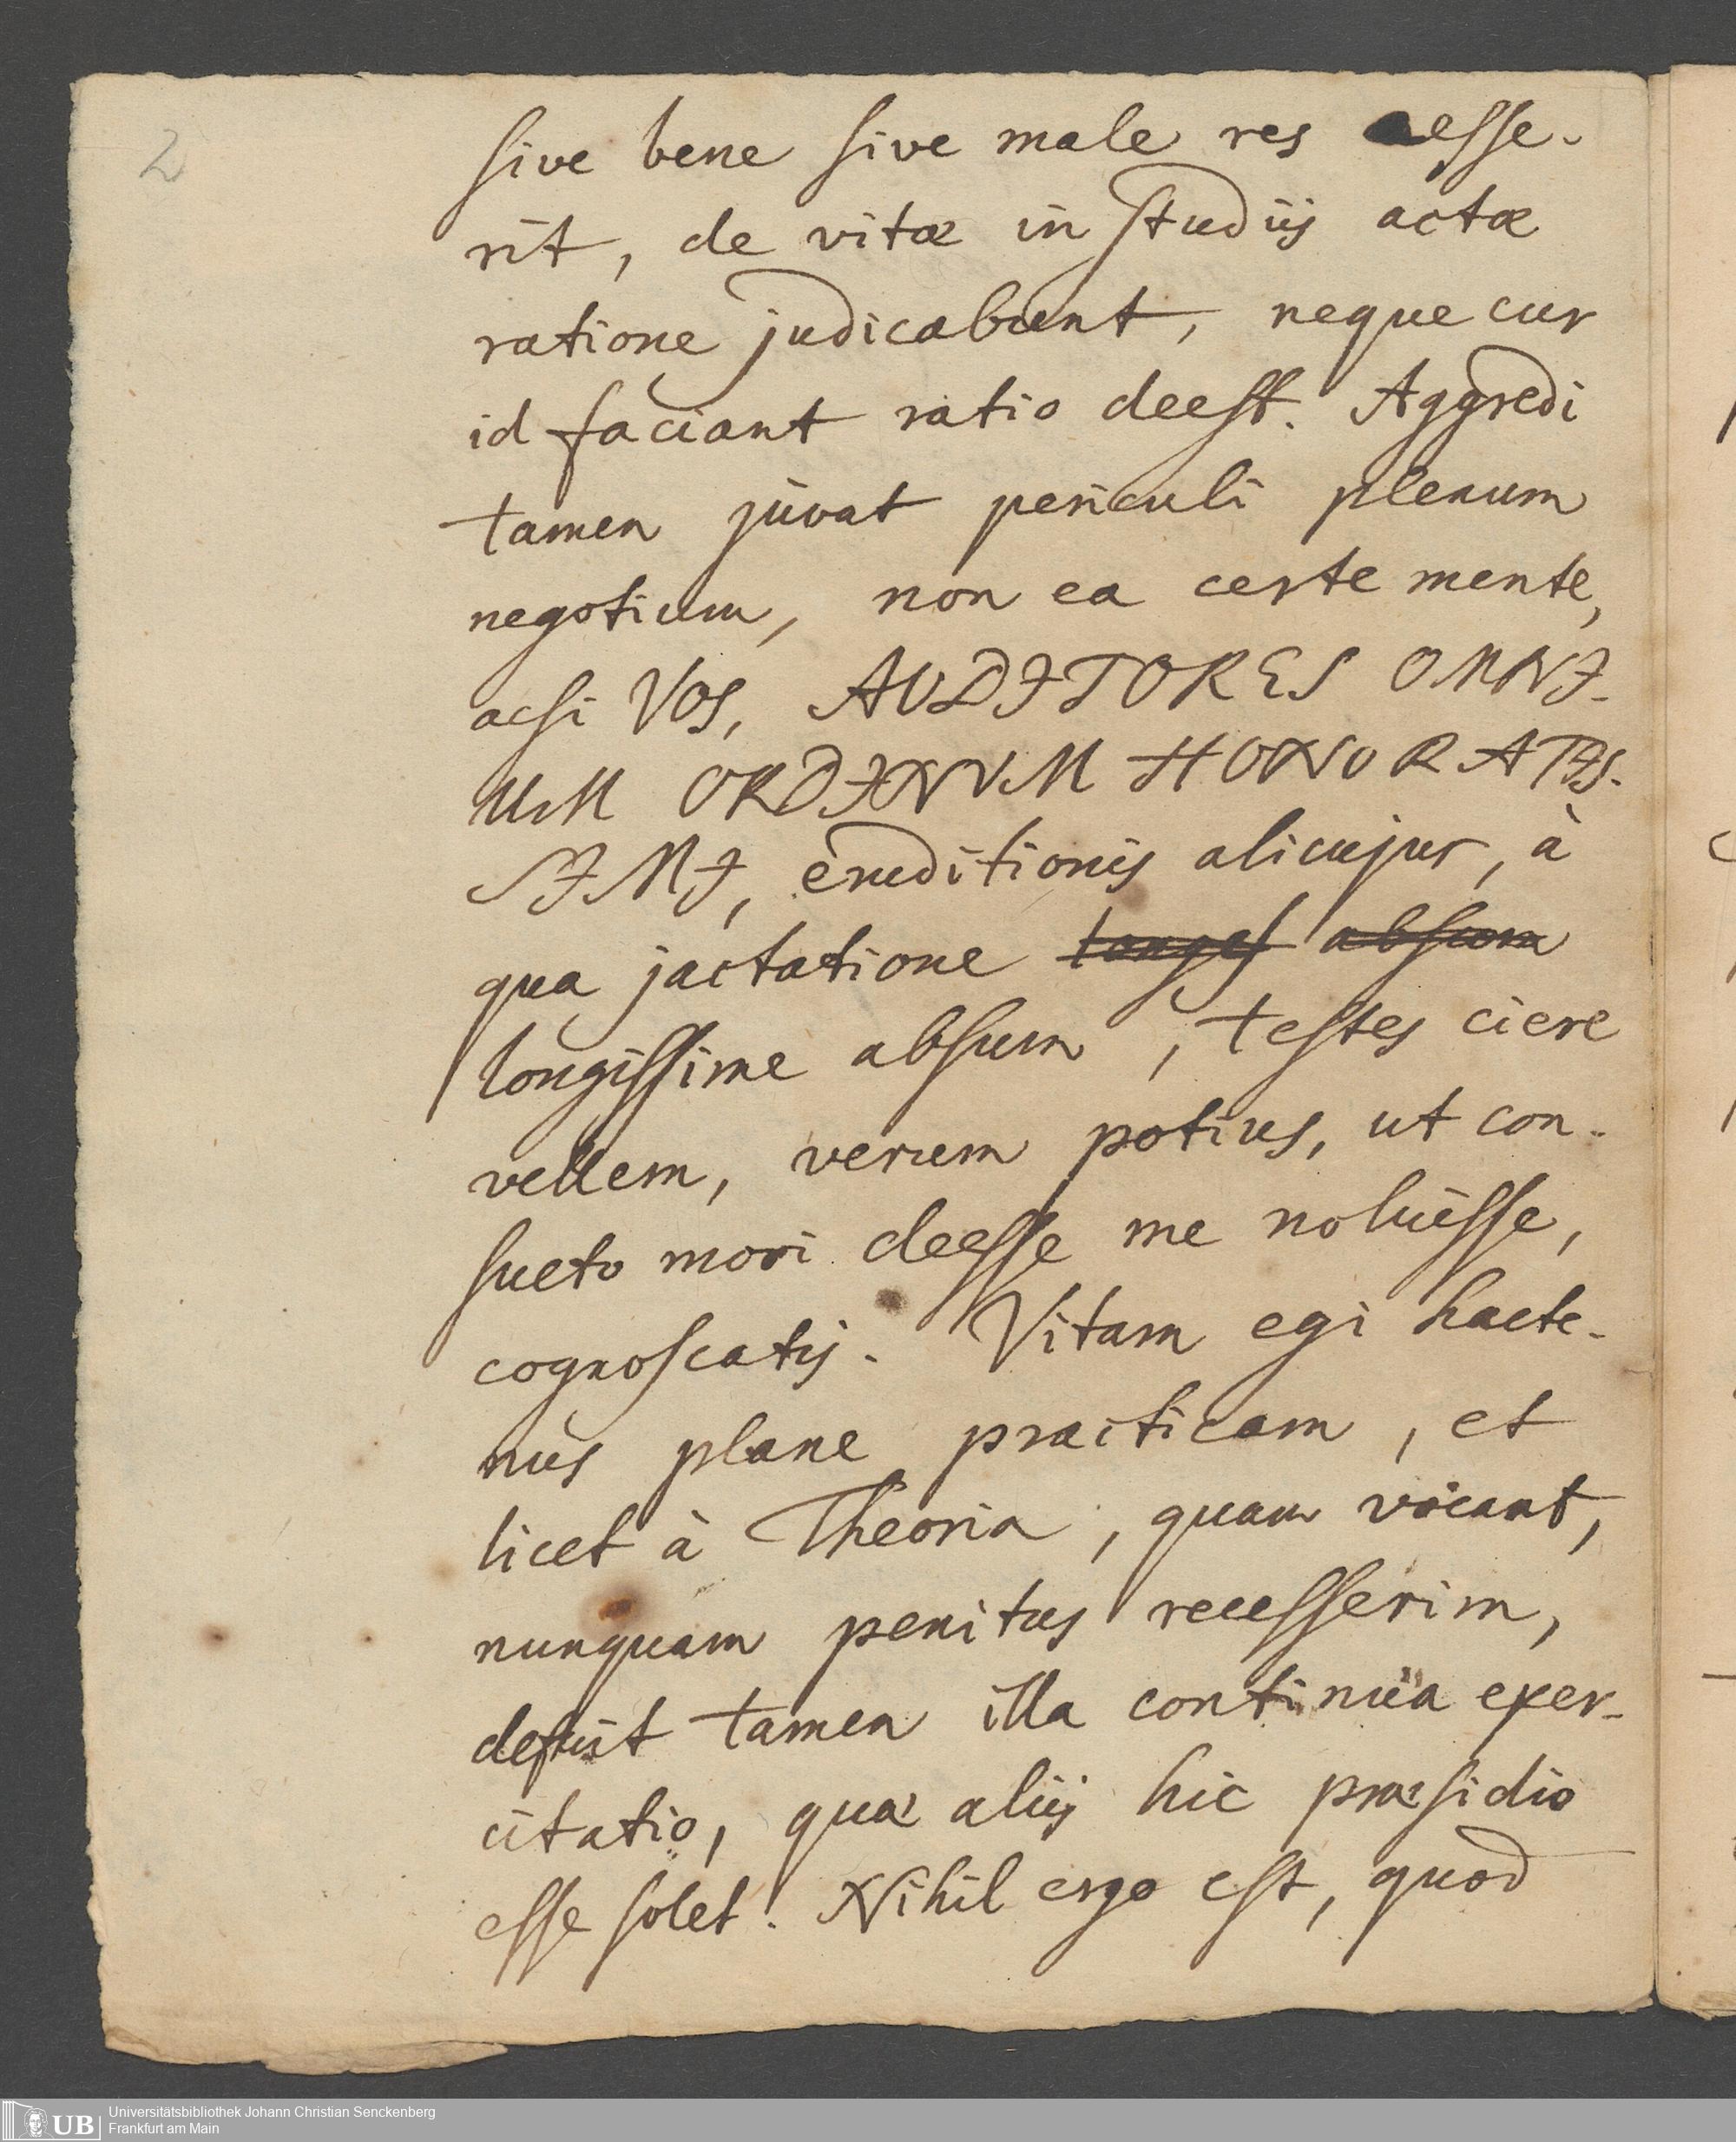 2
sive bene sive male res cesse-
rit, de vitæ in studiis actæ
ratione judicabunt, neque cur
id faciant ratio deest. Aggredi
tamen juvat periculi plenum
negotium, non ea certe mente,
acsi Vos, AUDITORES OMNI-
UM ORDINVM HONORATIS-
SIMI, eruditionis alicujus, à
qua jactatione longe absum
longissime absum, testes ciere
vellem, verum potius, ut con-
sueto mori deesse me noluisse,
cognoscatis. Vitam egi hacte-
nus plane practicam, et
licet à Theoria, quam vocant,
nunquam penitus recesserim,
defuit tamen illa continua exer-
citatio, quæ aliis hic præsidio
esse solet. Nihil ergo est, quod
UB Universitätsbibliothek Johann Christian Senckenberg
Frankfurt am Main